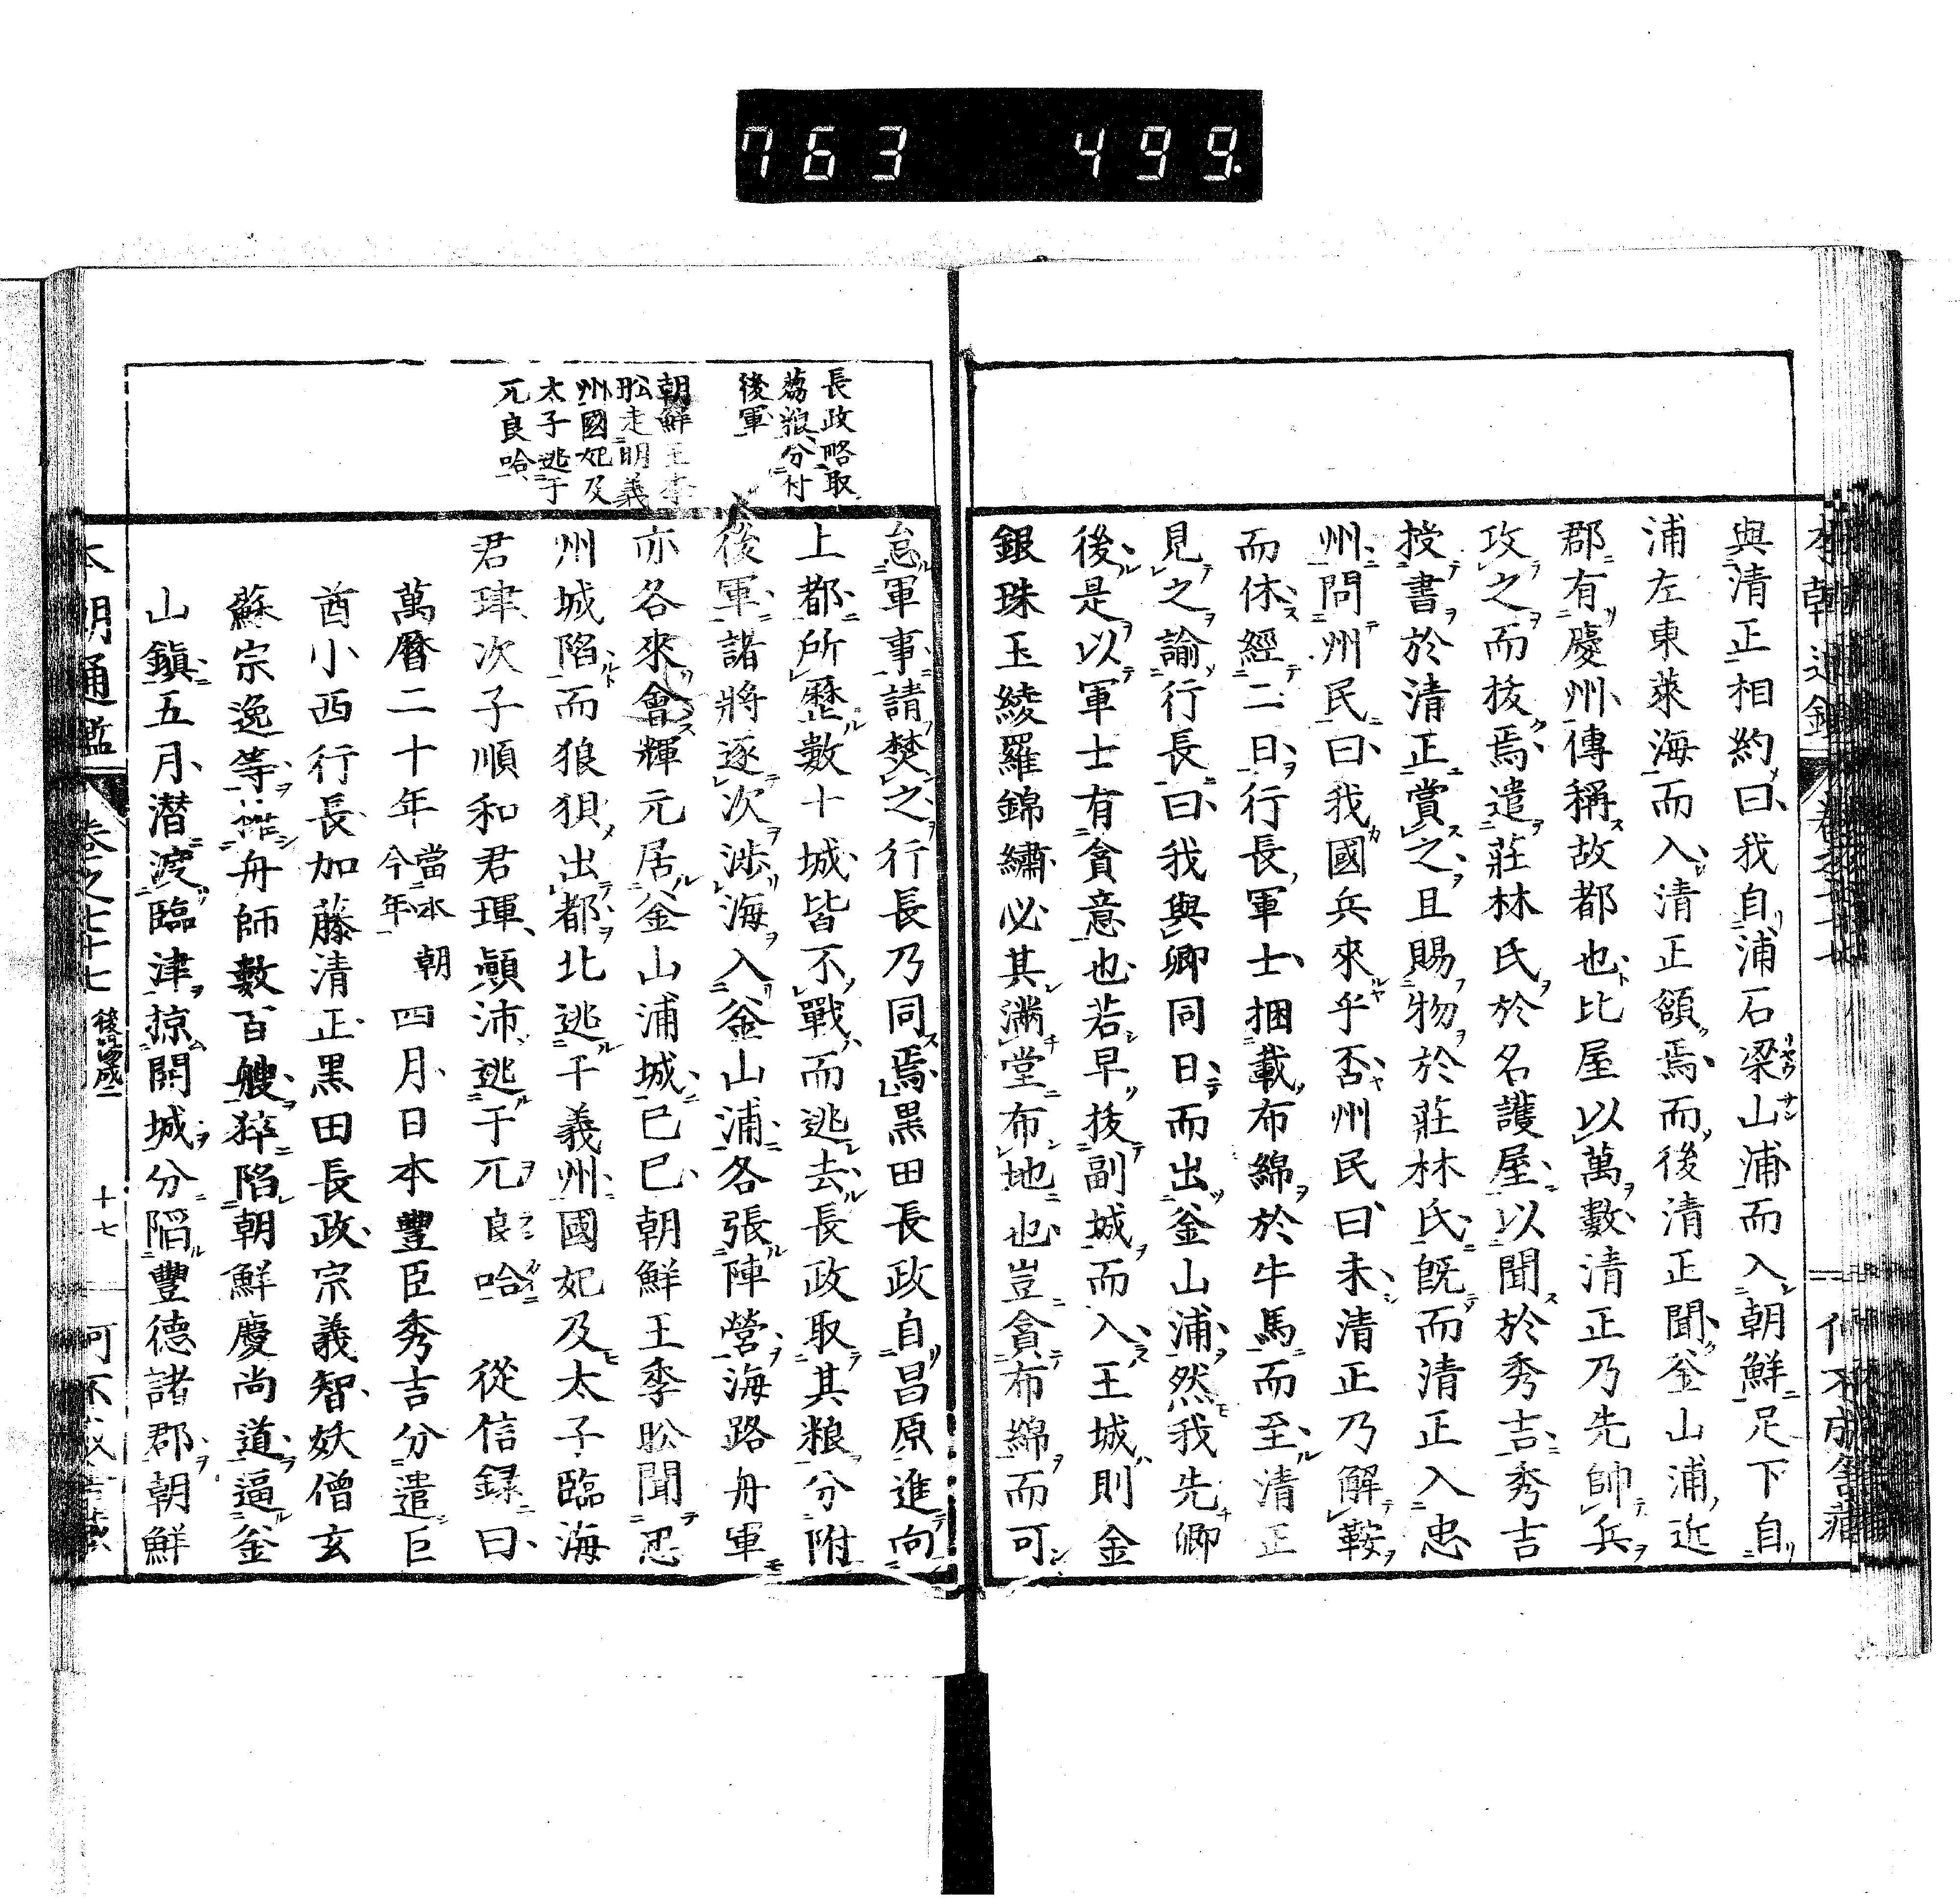 763 499
與清正相約曰我自浦石梁山浦而入朝鮮足下自
浦左東萊海而入清正領焉而後清正聞釜山浦近
郡有慶州傳稱故都也比屋以萬數清正乃先帥兵
攻之而拔焉遣莊林氏於名護屋以聞於秀吉秀吉
授書於清正賞之且賜物於莊林氏既而清正入忠
州問州民曰我國兵來乎否州民曰未清正乃解鞍
而休經二日行長軍士捆載布綿於牛馬而至清正
見之諭行長曰我與卿同日而出釜山浦然我先卿
後是以軍士有貪意也若早拔副城而入王城則金
銀珠玉綾羅錦繡必其滿堂布地也豈貪布綿而可
長政略取
芻粮分付
後軍
朝鮮王李
昖走明義
州國妃及
太子逃于
兀良哈
怠軍事請焚之行長乃同焉黒田長政自昌原進向
上都所歷數十城皆不戰而逃去長政取其粮分附
後軍諸將逐次渉海入釜山浦各張陣營海路舟軍
亦各來會輝元居釜山浦城已巳朝鮮王李昖聞忠
州城陷而狼狽出都北逃于義州國妃及太子臨海
君珒次子順和君琿顛沛逃于兀良哈 從信録曰
萬曆二十年當本朝今年四月日本豐臣秀吉分遣巨
酋小西行長加藤清正黒田長政宗義智妖僧玄
蘇宗逸等舟師數百艘猝陷朝鮮慶尚道逼釜
山鎭五月潜渡臨津掠開城分陷豐德諸郡朝鮮
本朝通鑑 卷之七十七 十七